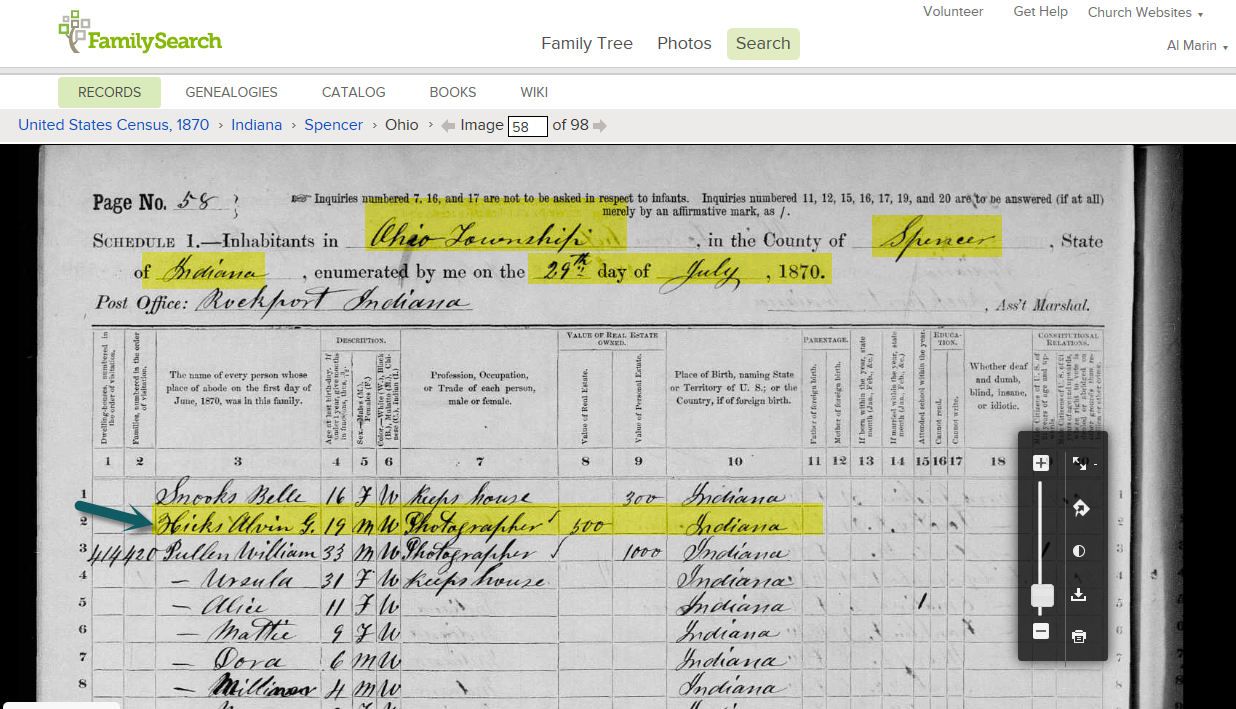 Volunteer Get Help Church Websites
FamilySearch
Family Tree Photos Search
Al Marin
RECORDS GENEALOGIES CATALOG BOOKS WIKI
United States Census, 1870 › Indiana › Spencer › Ohio › Image 58 of 98
Page No. 58 Inquiries numbered 7, 16, and 17 are not to be asked in respect to infants. Inquiries numbered 11, 12, 15, 16, 17, 19, and 20 are to be answered (if at all)
merely by an affirmative mark, as /.
SCHEDULE 1.—Inhabitants in Ohio Township, in the County of Spencer, State
of Indiana, enumerated by me on the 29th day of July, 1870.
Post Office: Rockport Indiana , Ass't Marshal.
Dwelling-houses, numbered in the order of visitation.
Families, numbered in the order of visitation.
The name of every person whose place of abode on the first day of June, 1870, was in this family.
DESCRIPTION.
Age at last birth-day. If under 1 year, give months in fractions, thus,
Sex.—Males (M.), Females (F.)
Color.—White (W.), Black (B.), Mulatto (M.), Chinese (C.), Indian (I.)
Profession, Occupation, or Trade of each person, male or female.
VALUE OF REAL ESTATE OWNED.
Value of Real Estate.
Value of Personal Estate.
Place of Birth, naming State or Territory of U. S.; or the Country, if of foreign birth.
PARENTAGE.
Father of foreign birth.
Mother of foreign birth.
If born within the year, state month (Jan., Feb., &c.)
If married within the year, state month (Jan., Feb., &c.)
Attended school within the year.
EDUCATION.
Cannot read.
Cannot write.
Whether deaf and dumb, blind, insane, or idiotic.
CONSTITUTIONAL RELATIONS.
1 2 3 4 5 6 7 8 9 10 11 12 13 14 15 16 17 18
1 Snooks Belle 16 F W Keeps house 300 Indiana 1
2 Hicks Alvin G. 19 M W Photographer 500 Indiana 2
3 414 420 Pullen William 33 M W Photographer 1000 Indiana 3
4 — Ursula 31 F W Keeps house Indiana 4
5 — Alice 11 F W Indiana / 5
6 — Mattie 9 F W Indiana 6
7 — Dora 6 M W Indiana 7
8 — 4 M W Indiana 8